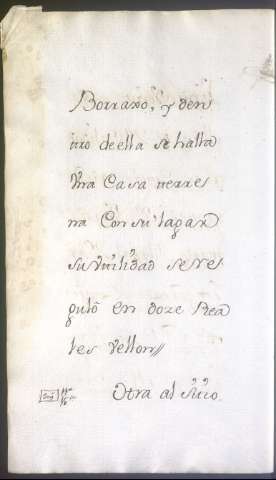 Borraxo, y den
tro de ella se halla
Una Casa terres
na Con su lagar
su Vtilidad se res
guló en doze Rea
les Vellon//
Otra al sitio